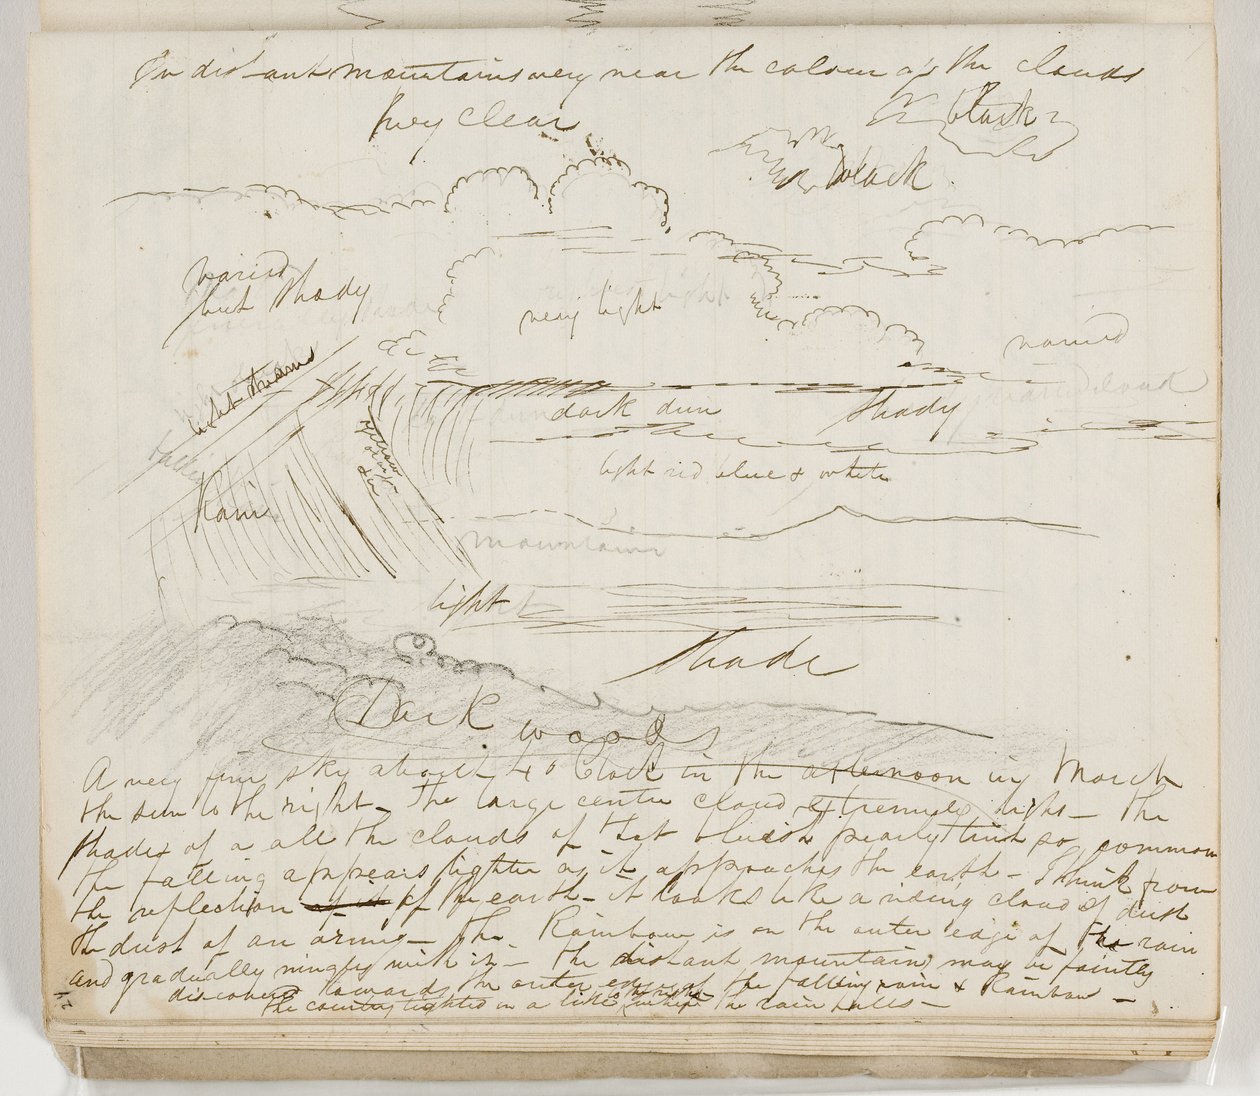 On distant mountains very near the colour of the clouds
very clear
black
black
varied
but shady
very light
varied
light streams
dark dun
shady
yellow
light red blue & white
Rain
mountains
light
shade
Dark woods
A very fine sky about 4 o Clock in the afternoon in March
the sun to the right — The large centre cloud extremely light — the
shades of a all the clouds of that blueish pearly tint so common
the falling appears lighter as it approaches the earth — I think from
the reflection of it of the earth — it looks like a rising cloud of dust
the dust of an army — the Rainbow is on the outer edge of the rain
and gradually mingles with it — the distant mountains may be faintly
discovered toward the outer edge of the falling rain & Rainbow —
the country lighted in a little where the rain falls —